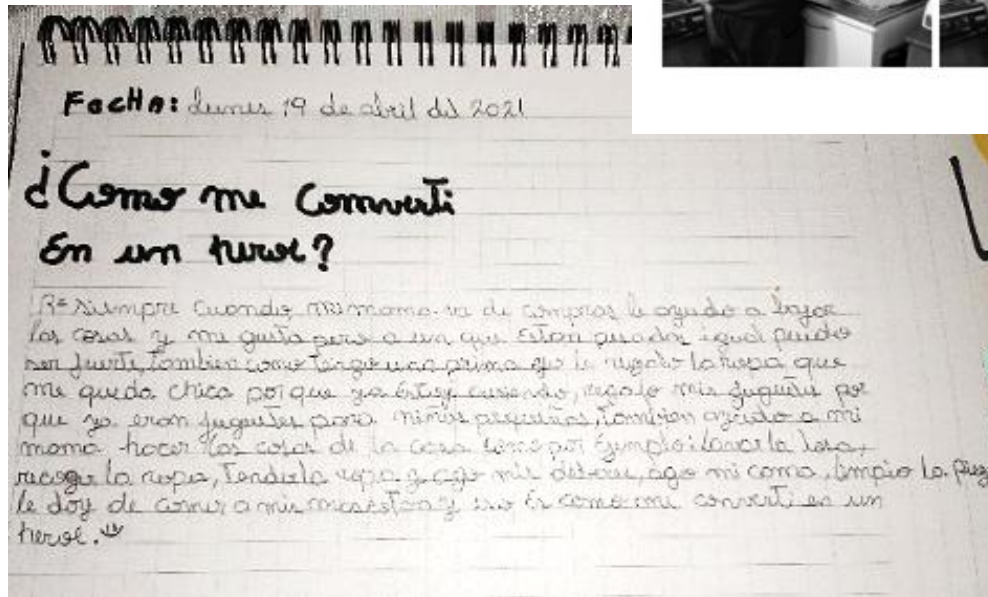 FecHa: lunes 19 de abril del 2021
¿Como me Converti
En un heroe?
R= Siempre cuando mi mama va de compras le ayudo a bajar
las cosas y me gusta pero a un que Estan pesadas igual puedo
ser fuerte, Tambien como tengo una prima que le regalo la ropa que
me queda chica porque ya Estoy creciendo, regalo mis juguetes por
que ya eran juguetes para niños pequeños, Tambien ayudo a mi
mama hacer las cosas de la casa como por Ejemplo: lavar la loza,
recoger la ropa, Tender la ropa y ago mis deberes, ago mi cama, limpio la pieza
le doy de comer a mis mascotas y eso Es como me converti en un
heroe.